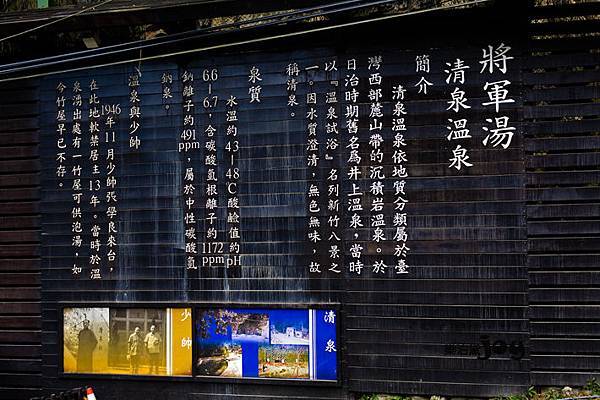 將軍湯
清泉溫泉
簡介
清泉溫泉依地質分類屬於臺
灣西部麓山帶的沉積岩溫泉。於
日治時期舊名為井上溫泉,當時
以『溫泉試浴』名列新竹八景之
一。因水質澄清,無色無味,故
稱清泉。
泉質
水溫約43-48℃酸鹼值約pH
6.6-6.7,含碳酸氫根離子約1172 ppm
鈉離子約491 ppm,屬於中性碳酸氫
鈉泉。
溫泉與少帥
1946年11月少帥張學良來台,
在此地軟禁居主13年。當時於溫
泉湯出處有一竹屋可供泡湯,如
今竹屋早已不存。
清泉
少帥
jog